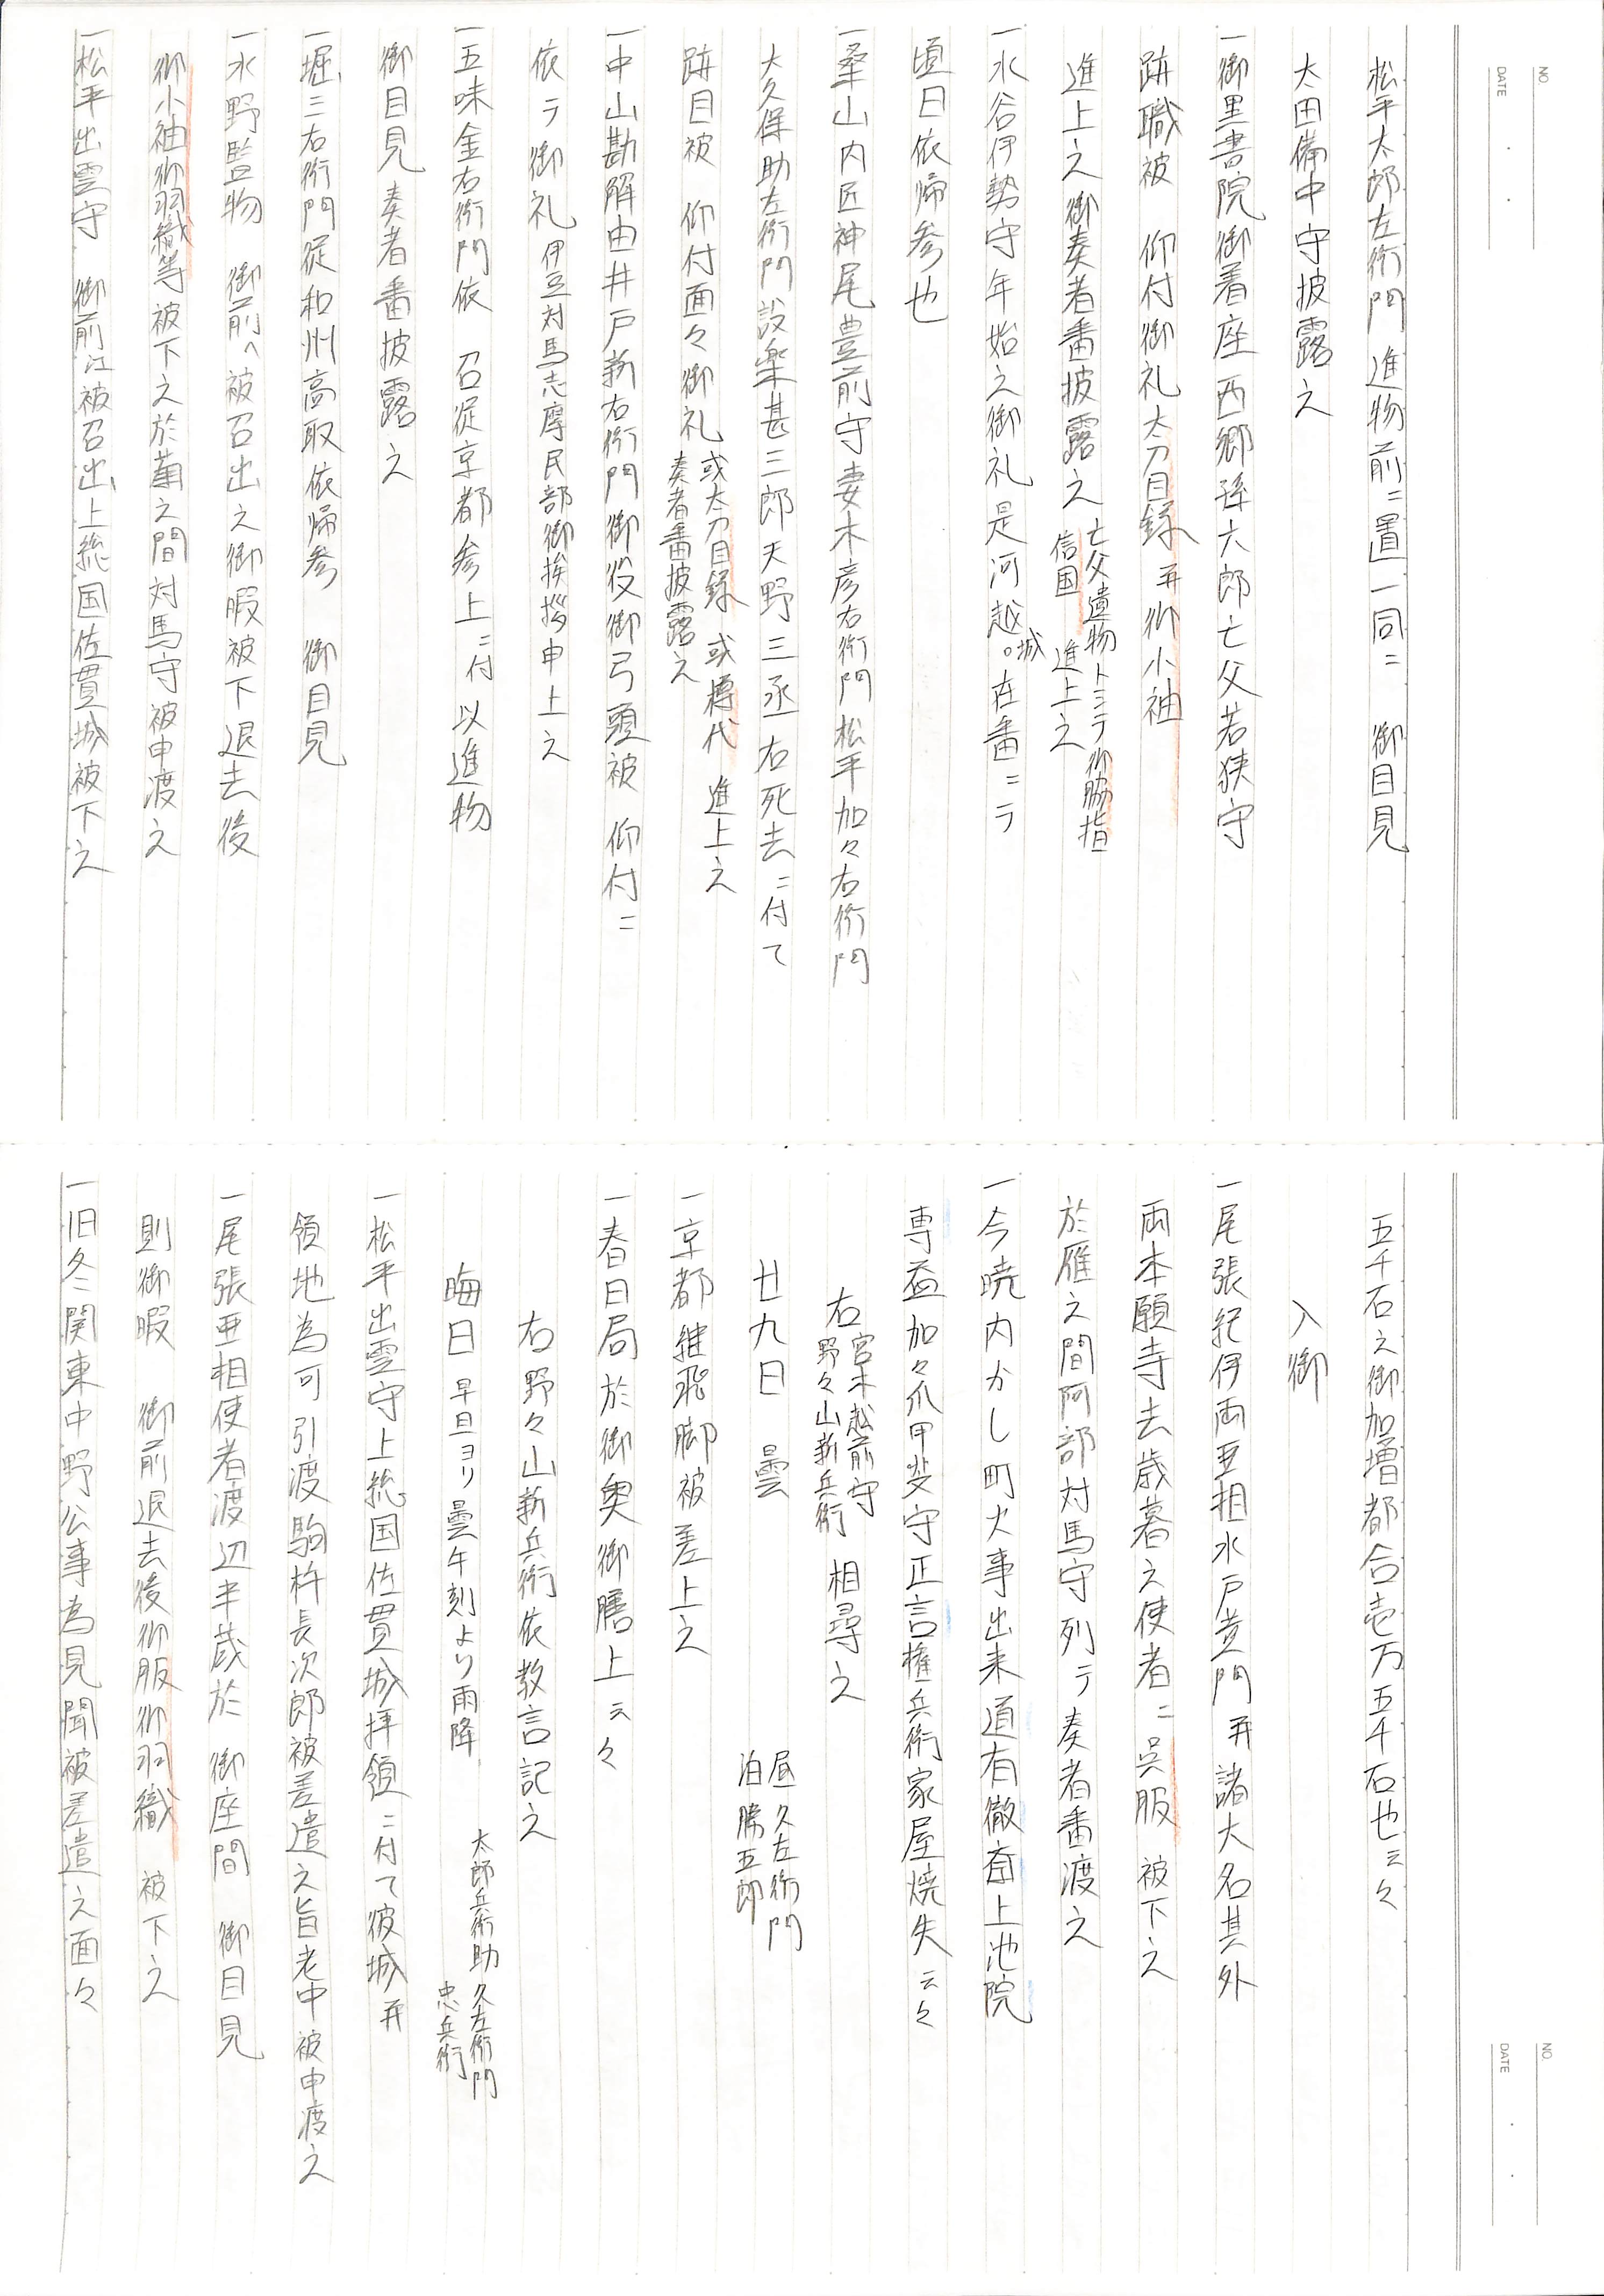 NO.
DATE
松平太郎左衛門　進物前ニ置一同ニ　御目見
太田備中守披露之
一御黒書院御着座　西郷孫六郎亡父若狭守
跡職被　仰付御礼太刀目録并御小袖
進上之御奏者番披露之　亡父遺物トシテ御脇指
信国　進上之
一水谷伊勢守年始之御礼是河越城。在番ニテ
頃日依帰参也
一桑山内匠神尾豊前守妻木彦右衛門松平加々右衛門
大久保助左衛門設楽甚三郎天野三丞右死去ニ付て
跡目被　仰付面々御礼　或太刀目録　或樽代　進上之
奏者番披露之
一中山勘解由井戸新右衛門御役御弓頭被　仰付ニ
依テ御礼　伊豆対馬志摩民部御挨拶申上之
一五味金右衛門依　召従京都参上ニ付　以進物
御目見奏者番披露之
一堀三右衛門従和州高取依帰参　御目見
一水野監物　御前へ被召出之御暇被下退去後
御小袖御羽織等被下之於菊之間対馬守被申渡之
一松平出雲守　御前江被召出上総国佐貫城被下之
NO.
DATE
五千石之御加増都合壱万五千石也云々
入御
一尾張紀伊両亜相水戸黄門　并諸大名其外
両本願寺去歳暮之使者ニ呉服　被下之
於雁之間阿部対馬守列テ奏者番渡之
一今暁内かし町火事出来道有徹斎上池院
専益加々爪甲斐守正言権兵衛家屋焼失云々
右　宮木越前守
野々山新兵衛　相尋之
廿九日　曇　昼　久左衛門
泊　勝五郎
一京都継飛脚被差上之
一春日局於御奥御膳上云々
右野々山新兵衛依教言記之
晦日　早旦ヨリ曇午刻より雨降　太郎兵衛助　久左衛門
忠兵衛
一松平出雲守上総国佐貫城拝領ニ付て彼城并
領地為可引渡駒杵長次郎被差遣之旨老中被申渡之
一尾張亜相使者渡辺半蔵於　御座間　御目見
則御暇　御前退去後御服御羽織　被下之
一旧冬関東中野公事為見聞被差遣之面々